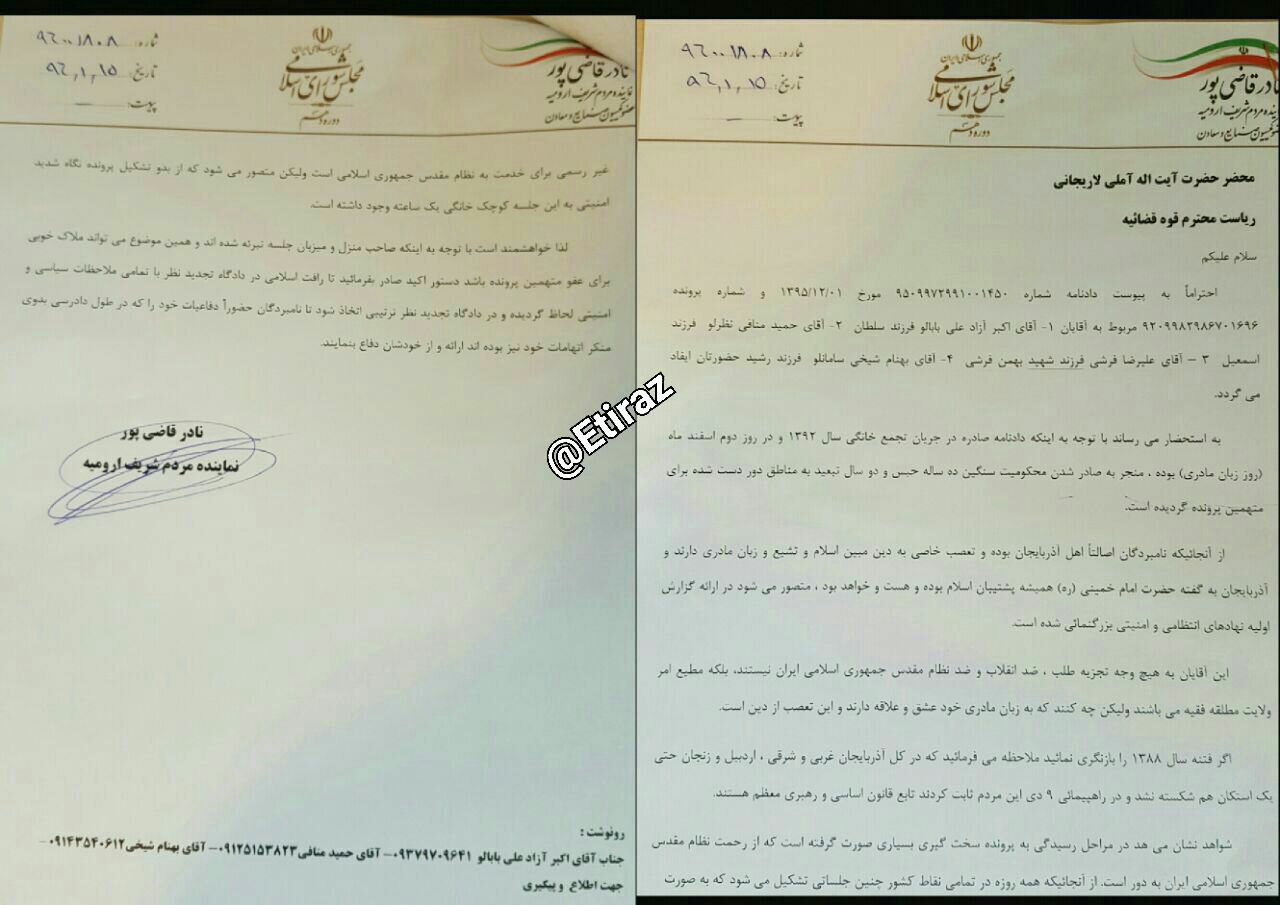 شماره: ۹۶۰۰۱۸۰۸
تاریخ: ۹۶,۱,۱۵
پیوست: —
جمهوری اسلامی ایران
مجلس شورای اسلامی
دوره دهم
نادر قاضی پور
نماینده مردم شریف ارومیه
کمیسیون صنایع و معادن
محضر حضرت آیت اله آملی لاریجانی
ریاست محترم قوه قضائیه
سلام علیکم
احتراماً به پیوست دادنامه شماره ۹۵۰۹۹۷۲۹۹۱۰۰۱۴۵۰ مورخ ۱۳۹۵/۱۲/۰۱ و شماره پرونده
۹۲۰۹۹۸۲۹۸۶۷۰۱۶۹۶ مربوط به آقایان ۱- آقای اکبر آزاد علی بابالو فرزند سلطان ۲- آقای حمید منافی نظرلو فرزند
اسمعیل ۳ – آقای علیرضا فرشی فرزند شهید بهمن فرشی ۴- آقای بهنام شیخی سامانلو فرزند رشید حضورتان ایفاد
می گردد.
به استحضار می رساند با توجه به اینکه دادنامه صادره در جریان تجمع خانگی سال ۱۳۹۲ و در روز دوم اسفند ماه
(روز زبان مادری) بوده ، منجر به صادر شدن محکومیت سنگین ده ساله حبس و دو سال تبعید به مناطق دور دست شده برای
متهمین پرونده گردیده است.
از آنجائیکه نامبردگان اصالتاً اهل آذربایجان بوده و تعصب خاصی به دین مبین اسلام و تشیع و زبان مادری دارند و
آذربایجان به گفته حضرت امام خمینی (ره) همیشه پشتیبان اسلام بوده و هست و خواهد بود ، متصور می شود در ارائه گزارش
اولیه نهادهای انتظامی و امنیتی بزرگنمائی شده است.
این آقایان به هیچ وجه تجزیه طلب ، ضد انقلاب و ضد نظام مقدس جمهوری اسلامی ایران نیستند، بلکه مطیع امر
ولایت مطلقه فقیه می باشند ولیکن چه کنند که به زبان مادری خود عشق و علاقه دارند و این تعصب از دین است.
اگر فتنه سال ۱۳۸۸ را بازنگری نمائید ملاحظه می فرمائید که در کل آذربایجان غربی و شرقی ، اردبیل و زنجان حتی
یک استکان هم شکسته نشد و در راهپیمائی ۹ دی این مردم ثابت کردند تابع قانون اساسی و رهبری معظم هستند.
شواهد نشان می هد در مراحل رسیدگی به پرونده سخت گیری بسیاری صورت گرفته است که از رحمت نظام مقدس
جمهوری اسلامی ایران به دور است. از آنجائیکه همه روزه در تمامی نقاط کشور چنین جلساتی تشکیل می شود که به صورت
شماره: ۹۶۰۰۱۸۰۸
تاریخ: ۹۶,۱,۱۵
پیوست: —
جمهوری اسلامی ایران
مجلس شورای اسلامی
دوره دهم
نادر قاضی پور
نماینده مردم شریف ارومیه
عضو کمیسیون صنایع و معادن
غیر رسمی برای خدمت به نظام مقدس جمهوری اسلامی است ولیکن متصور می شود که از بدو تشکیل پرونده نگاه شدید
امنیتی به این جلسه کوچک خانگی یک ساعته وجود داشته است.
لذا خواهشمند است با توجه به اینکه صاحب منزل و میزبان جلسه تبرئه شده اند و همین موضوع می تواند ملاک خوبی
برای عفو متهمین پرونده باشد دستور اکید صادر بفرمائید تا رافت اسلامی در دادگاه تجدید نظر با تمامی ملاحظات سیاسی و
امنیتی لحاظ گردیده و در دادگاه تجدید نظر ترتیبی اتخاذ شود تا نامبردگان حضوراً دفاعیات خود را که در طول دادرسی بدوی
منکر اتهامات خود نیز بوده اند ارائه و از خودشان دفاع بنمایند.
نادر قاضی پور
نماینده مردم شریف ارومیه
رونوشت :
جناب آقای اکبر آزاد علی بابالو ۰۹۳۷۹۷۰۹۶۴۱- آقای حمید منافی۰۹۱۲۵۱۵۳۸۲۳- آقای بهنام شیخی۰۹۱۴۳۵۴۰۶۱۲-
جهت اطلاع و پیگیری
@Etiraz